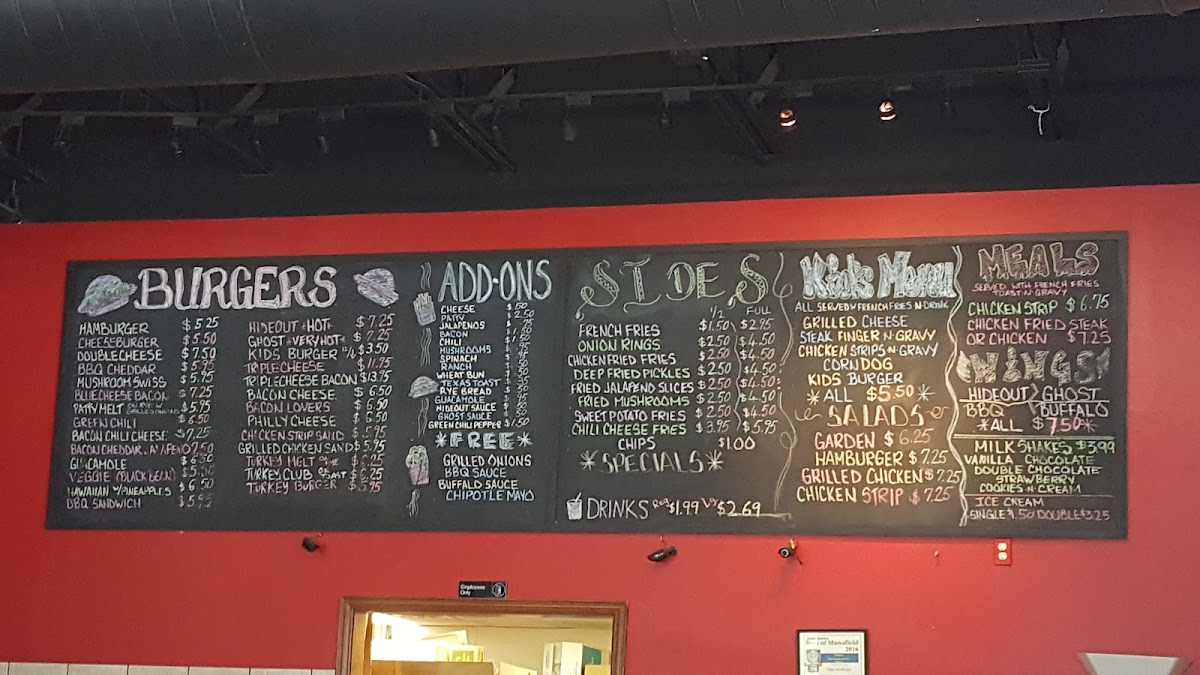 BURGERS
HAMBURGER $5.25
CHEESEBURGER $5.50
DOUBLE CHEESE $7.50
BBQ CHEDDAR $5.75
MUSHROOM SWISS $5.75
BLUECHEESE BACON $7.25
PATTY MELT $5.95
GREEN CHILI $6.50
BACON CHILI CHEESE $7.25
BACON CHEDDAR $7.50
GUACAMOLE $6.50
VEGGIE (BLACK BEAN)
HAWAIIAN W/PINEAPPLES $6.50
BBQ SANDWICH $5.95
HIDEOUT *HOT* $7.25
GHOST *VERY HOT* $7.25
KIDS BURGER 1/4 $3.50
TRIPLE CHEESE $11.75
TRIPLE CHEESE BACON $13.75
BACON CHEESE $6.50
BACON LOVERS
PHILLY CHEESE $6.50
CHICKEN STRIP SAND
GRILLED CHICKEN SAND $5.75
TURKEY MELT
TURKEY CLUB
TURKEY BURGER $5.75
ADD-ONS
CHEESE .50
PATTY $2.50
JALAPENOS
BACON
CHILI
MUSHROOMS
SPINACH
RANCH
WHEAT BUN
TEXAS TOAST
RYE BREAD
GUACAMOLE
HIDEOUT SAUCE
GHOST SAUCE
GREEN CHILI PEPPER $1.50
*FREE*
GRILLED ONIONS
BBQ SAUCE
BUFFALO SAUCE
CHIPOTLE MAYO
SIDES
1/2 FULL
FRENCH FRIES $1.50 $2.95
ONION RINGS $2.50 $4.50
CHICKEN FRIED FRIES $2.50 $4.50
DEEP FRIED PICKLES $2.50 $4.50
FRIED JALAPENO SLICES $2.50 $4.50
FRIED MUSHROOMS $2.50 $4.50
SWEET POTATO FRIES $2.50 $4.50
CHILI CHEESE FRIES $3.95 $5.95
CHIPS $1.00
*SPECIALS*
DRINKS Reg $1.99 Lg $2.69
Kids Menu
ALL SERVED W FRENCH FRIES N DRINK
GRILLED CHEESE
STEAK FINGER N GRAVY
CHICKEN STRIPS N GRAVY
CORN DOG
KIDS BURGER
*ALL $5.50*
SALADS
GARDEN $6.25
HAMBURGER $7.25
GRILLED CHICKEN $7.25
CHICKEN STRIP $7.25
MEALS
SERVED WITH FRENCH FRIES
TOAST N GRAVY
CHICKEN STRIP $6.75
CHICKEN FRIED STEAK
OR CHICKEN $7.25
WINGS
HIDEOUT GHOST
BBQ BUFFALO
*ALL $7.50*
MILK SHAKES $3.99
VANILLA CHOCOLATE
DOUBLE CHOCOLATE
STRAWBERRY
COOKIES-N-CREAM
ICE CREAM
SINGLE $1.50 DOUBLE $3.25
Employees
Only
Best of Mansfield
2016